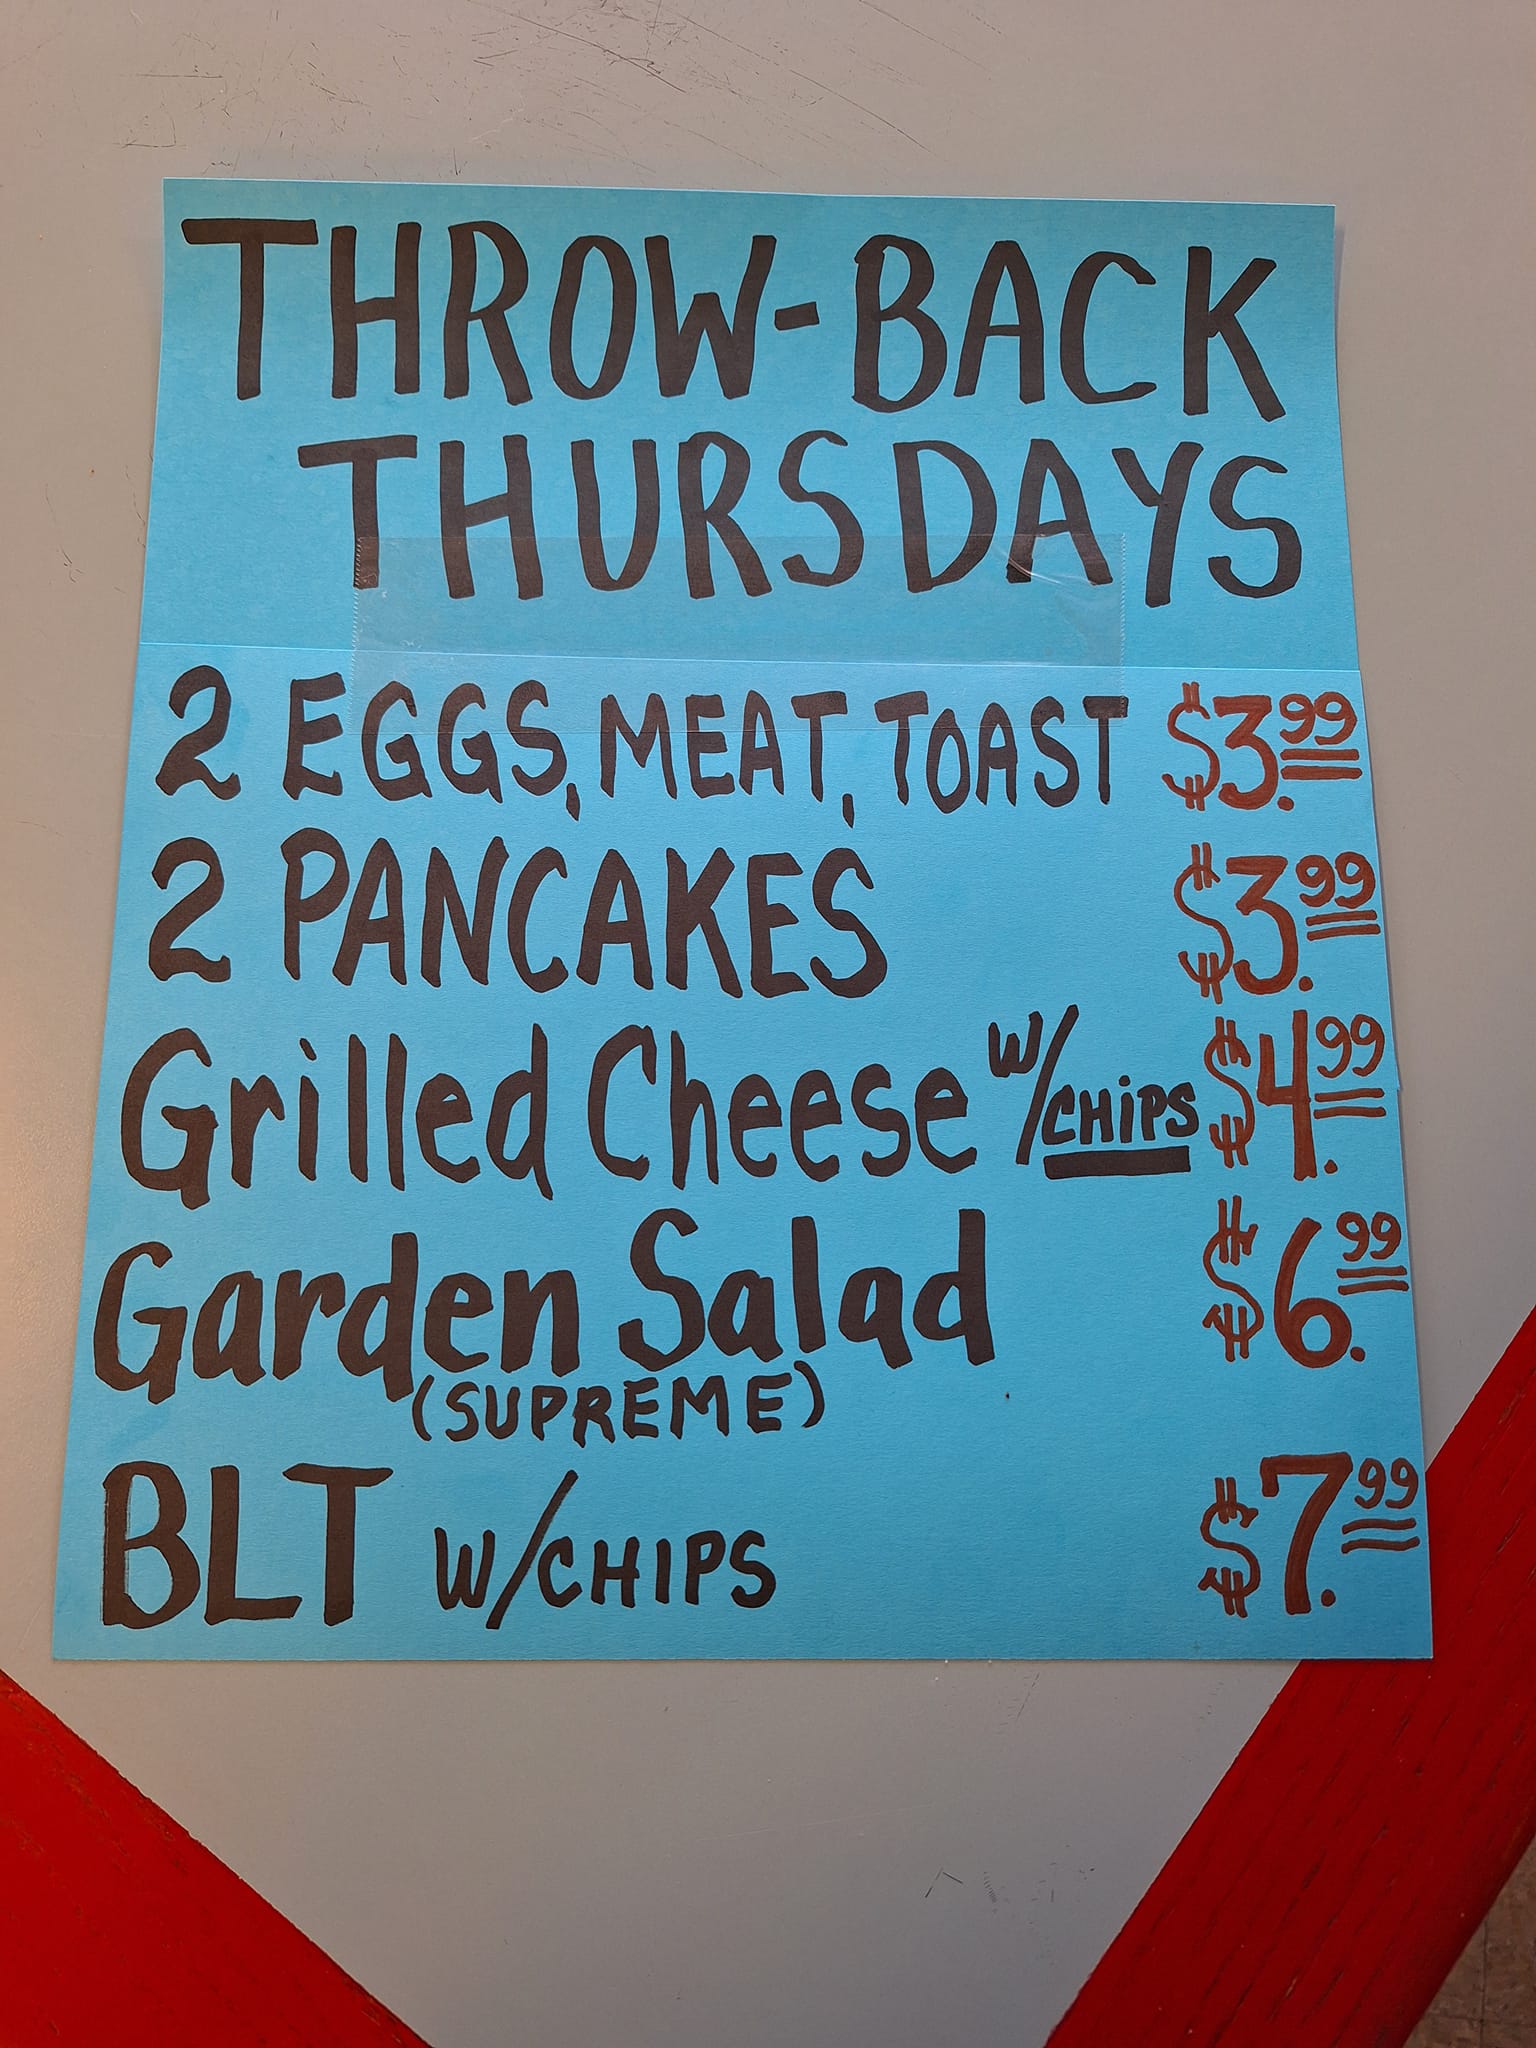 THROW-BACK
THURSDAYS
2 EGGS, MEAT, TOAST $3.99
2 PANCAKES $3.99
Grilled Cheese w/CHiPS $4.99
Garden Salad $6.99
(SUPREME)
BLT W/CHIPS $7.99